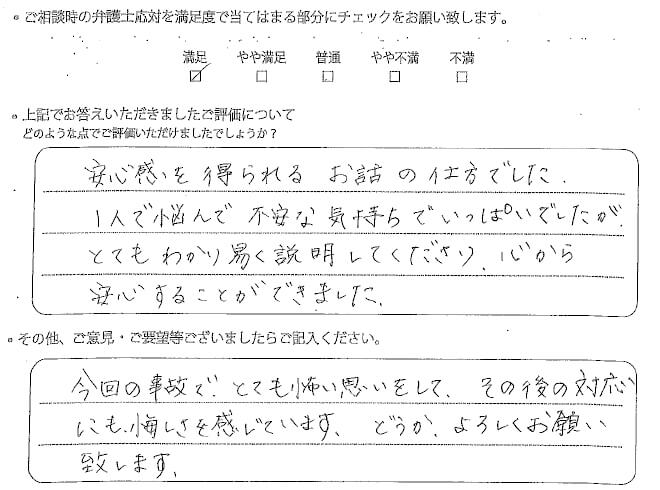 ご相談時の弁護士応対を満足度で当てはまる部分にチェックをお願い致します。
満足 やや満足 普通 やや不満 不満
上記でお答えいただきましたご評価について
どのような点でご評価いただけましたでしょうか？
安心感を得られるお話の仕方でした。
1人で悩んで不安な気持ちでいっぱいでしたが、
とてもわかり易く説明してくださり、心から
安心することができました。
その他、ご意見・ご要望等ございましたらご記入ください。
今回の事故で、とても怖い思いをして、その後の対応
にも悔しさを感じています。どうか、よろしくお願い
致します。